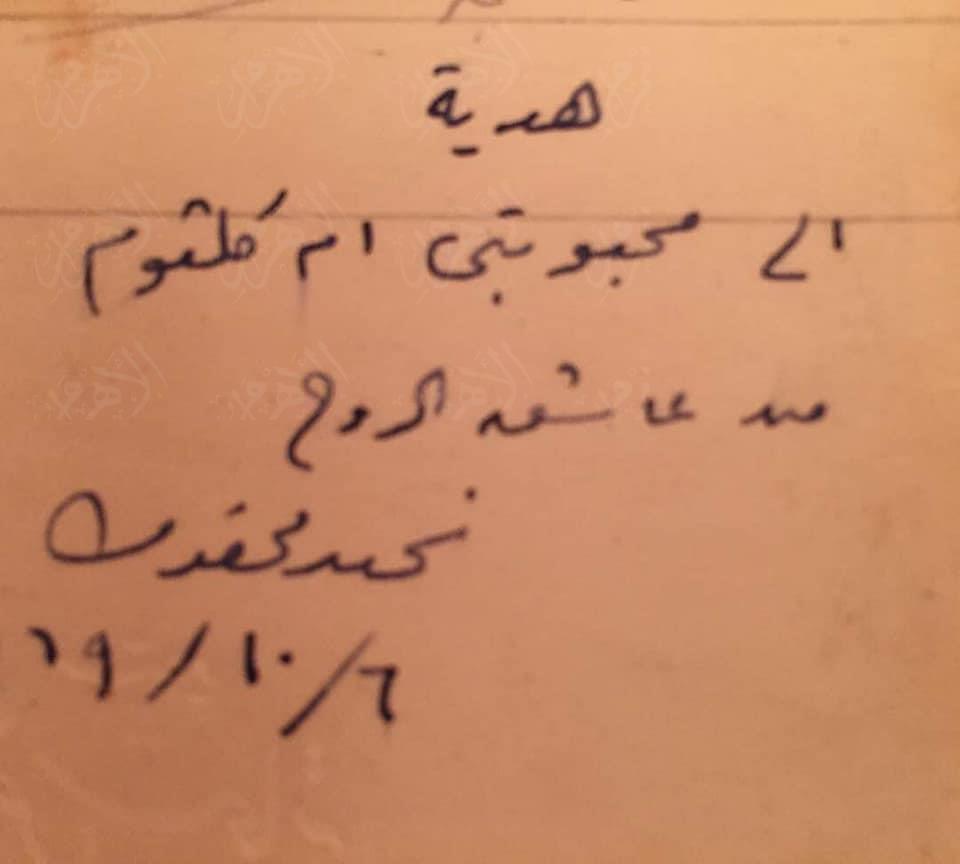 هدية
الى محبوبتى ام كلثوم
من عاشق الروح
نجيب محفوظ
٦/١٠/١٩